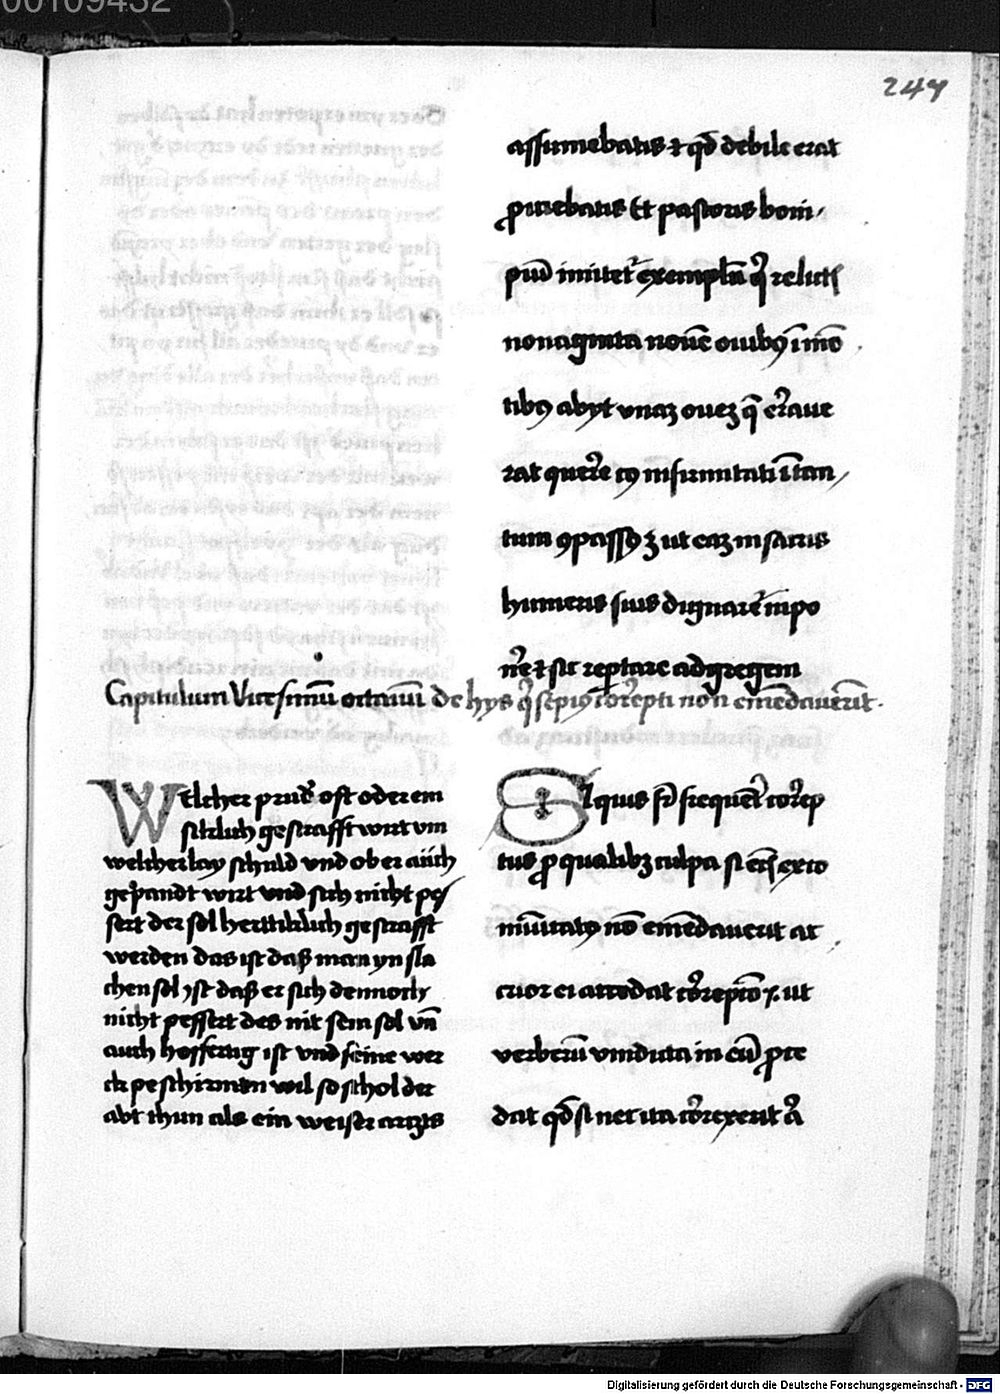 00109432
247
assumebatis ⁊ qd̄ debile erat
ꝓiciebatis Et pastoris boni
piū imitet᷑ exemplū qͥ relictꝭ
nonaginta noūe ouibꝰ ī mō
tibꝰ abyt vnaꝫ oueꝫ q̄ erͣaue
rat querͤe cꝰ infirmitati ī tan
tum ꝯpassꝰ ꝫ ut eaꝫ in sacris
humeris suis dignarēt inpo
nͤre ⁊ sic reportare ad gregem
Capitulum Vicesimū octauū De hys qͥ sepiꝰ corͤepti non emēdauerīt
Welcher prudͤ oft oder em
siklich gestrafft wirt vm
welcherlay schuld vnd ob er aūch
gepandt wirt vnd sich nicht pes
sert der sol herttiklich gestrafft
werden das ist daß man yn sla
chen sol yst daß er sich dennoch
nicht pessert des nit sein sol vn̄
auch hoffertig ist vnd seine wer
ck peschirmen wil so schol der
abt thun als ein weiser arczts
Siquis fr̄ frequētͤ corͤep
tus ꝓ qualibꝫ culpa si ecͣ exco
mūicatꝰ nō emēdauerit ac
crior ei accedat corͤepcō .ı. ut
verberū vindicta in eū ꝓce
dat qd̄ si nec ita corͤexerit aͭ
Digitalisierung gefördert durch die Deutsche Forschungsgemeinschaft - DFG